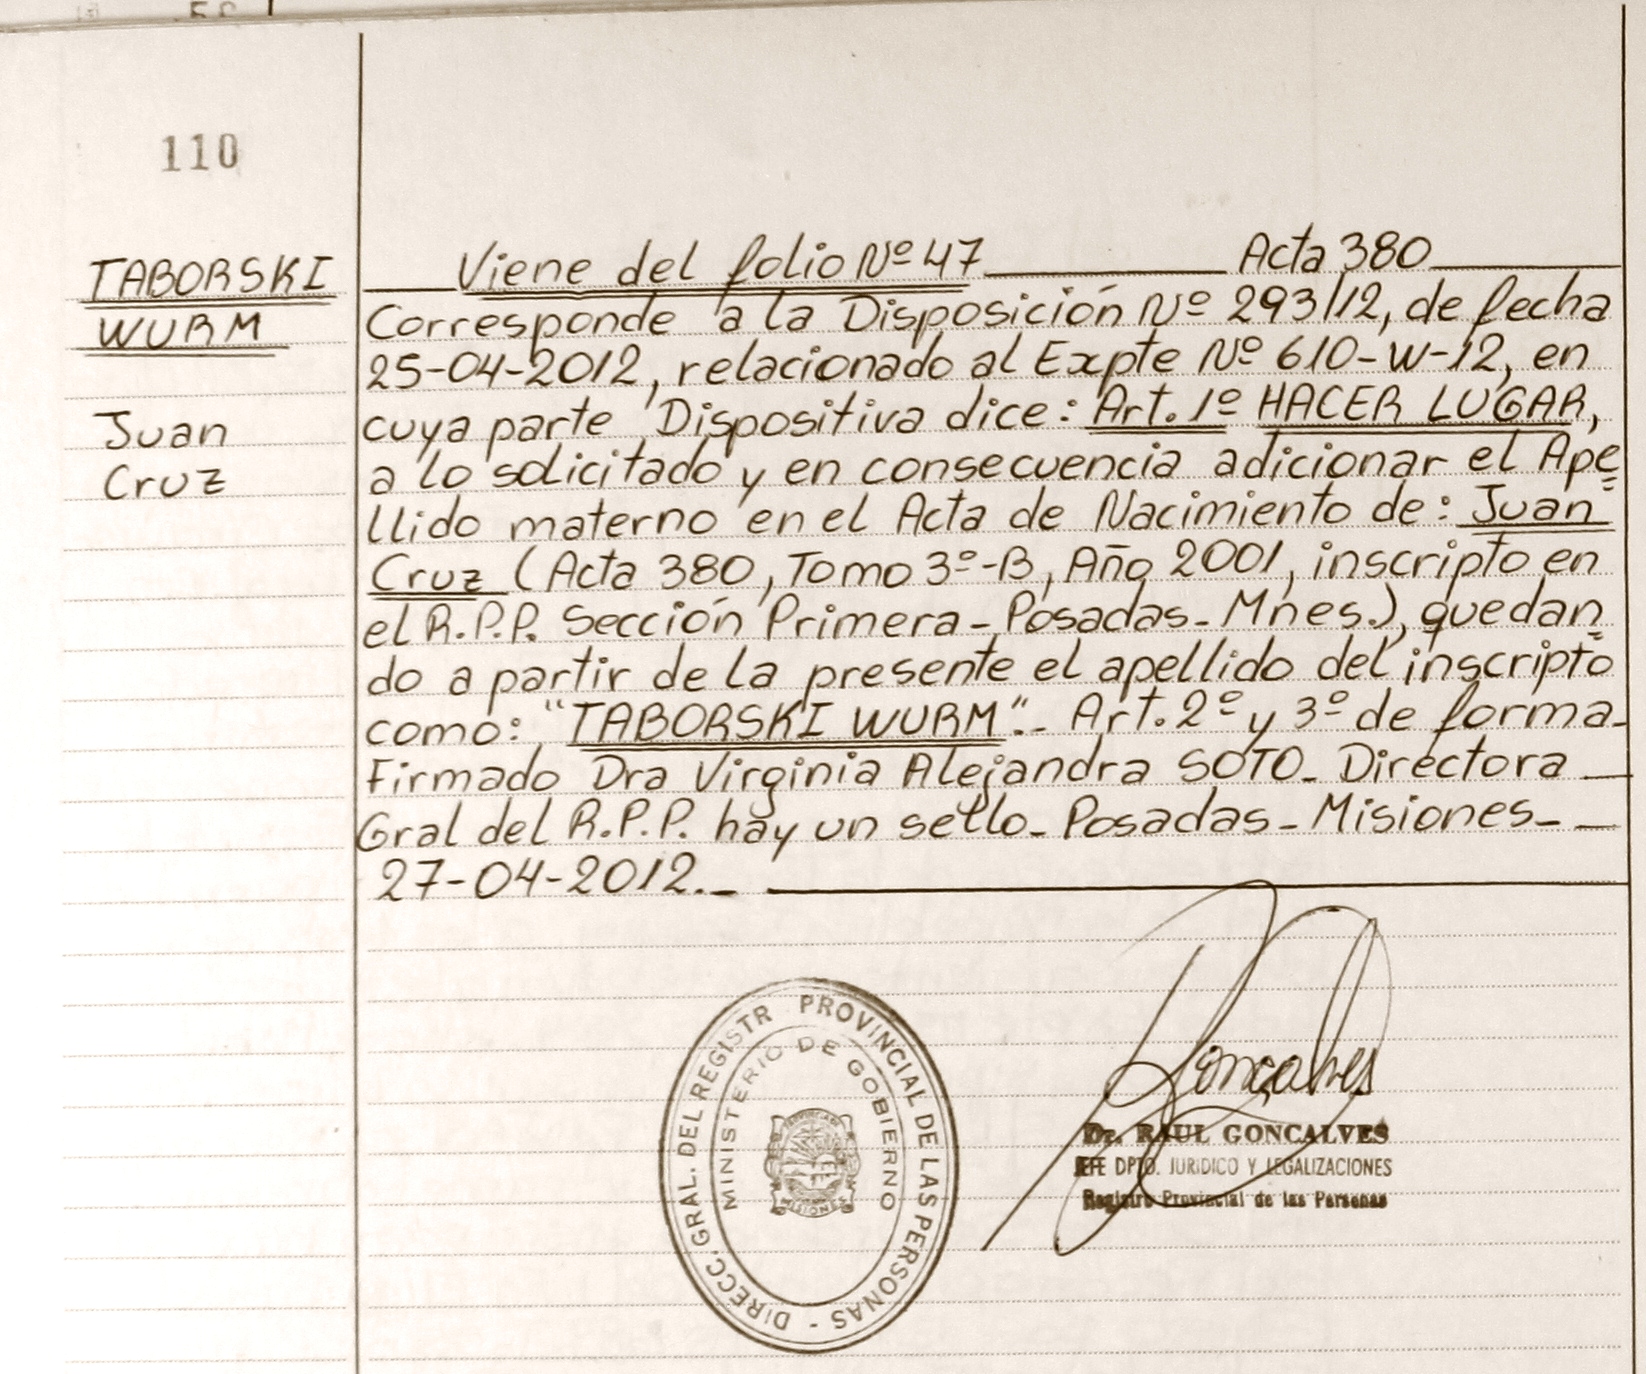 110
TABORSKI
WURM
Juan
Cruz
Viene del folio Nº 47 Acta 380
Corresponde a la Disposición Nº 293/12, de fecha
25-04-2012, relacionado al Expte Nº 610-W-12, en
cuya parte Dispositiva dice: Art. 1º HACER LUGAR,
a lo solicitado y en consecuencia adicionar el Ape=
llido materno en el Acta de Nacimiento de: Juan
Cruz (Acta 380, Tomo 3º-B, Año 2001, inscripto en
el R.P.P. Sección Primera - Posadas - Mnes.), quedan=
do a partir de la presente el apellido del inscripto
como: "TABORSKI WURM".- Art. 2º y 3º de forma-
Firmado Dra Virginia Alejandra SOTO - Directora
Gral del R.P.P. hay un sello - Posadas - Misiones -
27-04-2012.-
DIRECC. GRAL. DEL REGISTR PROVINCIAL DE LAS PERSONAS -
MINISTERIO DE GOBIERNO
MISIONES
Goncalves
Dr. RAUL GONCALVES
JEFE DPTO. JURIDICO Y LEGALIZACIONES
Registro Provincial de las Personas